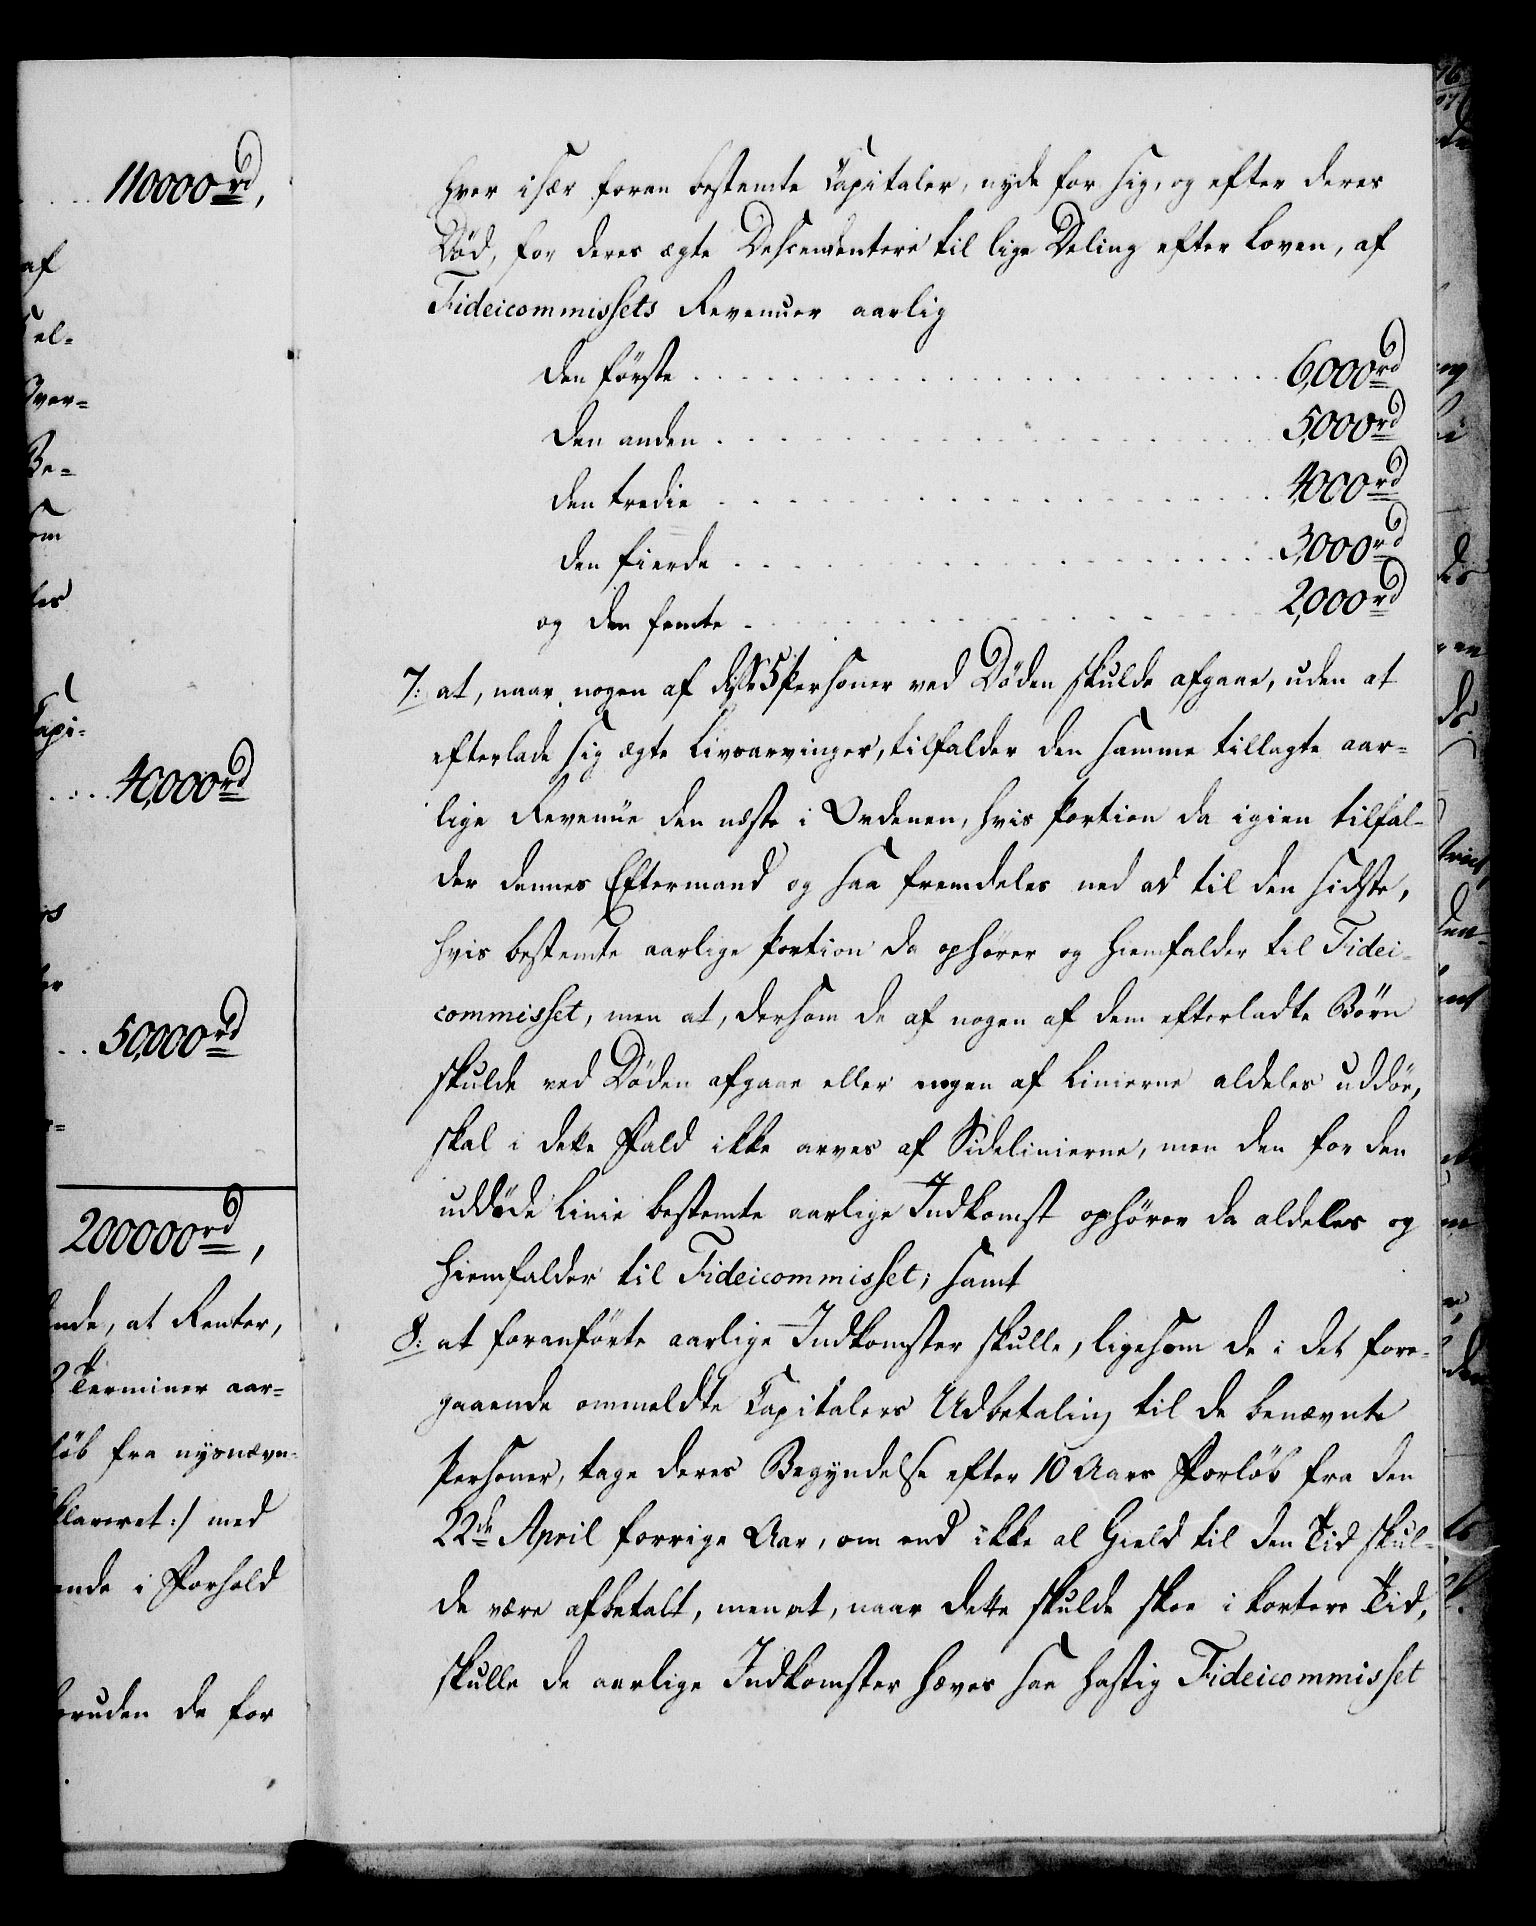 110000rd,
af
el-
Be-
Capi-
40,000rd
50,000rd
200000rd,
ende, at Renter,
2 Terminer aar-
løb fra nysnævn-
klareret:/ med
ende i Forhold
foruden de for
hver især foran bestemte Capitaler, nyde for sig, og efter deres
Död, for deres ægte Descendentere til lige Deling efter Loven, af
Fideicommissets Revenuer aarlig
den förste . . . 6,000rd
den anden . . . 5,000rd
den tredie . . . 4,000rd
den fierde . . . 3,000rd
og den femte . . . 2,000rd
7: at, naar nogen af disse 5 Personer ved Döden skulde afgaae, uden at
efterlade sig ægte Livsarvinger, tilfalder den samme tillagte aar-
lige Revenüe den næste i Ordenen, hvis Portion da igien tilfal-
der dennes Eftermand og saa fremdeles ned ad til den sidste,
hvis bestemte aarlige Portion da ophörer og hiemfalder til Fidei-
commisset, men at, dersom de af nogen af dem efterladte Börn
skulde ved Döden afgaae eller nogen af Linierne aldeles uddöe,
skal i dette Fald ikke arves af Sidelinierne, men den for den
uddöde Linie bestemte aarlige Indkomst ophörer da aldeles og
hiemfalder til Fideicommisset; samt
8: at foranförte aarlige Indkomster skulle, ligesom de i det fore-
gaaende ommeldte Capitalers Udbetaling til de benævnte
Personer, tage deres Begyndelse efter 10 Aars Forlöb fra den
22de April forrige Aar, om end ikke al Gield til den Tid skul-
de være afbetalt, men at, naar dette skulde skee i kortere Tid,
skulle de aarlige Indkomster hæves saa hastig Fideicommisset